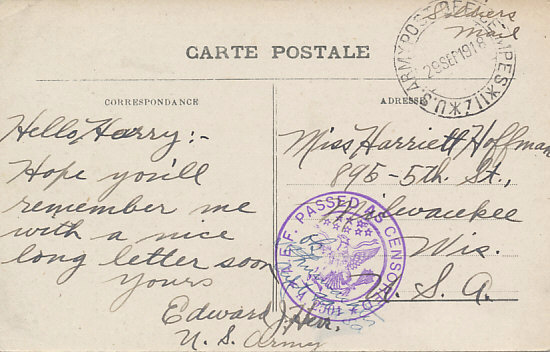 Soldiers
Mail
CARTE POSTALE
U.S. ARMY POST OFFICE
29SEP1918
711
CORRESPONDANCE
ADRESSE
Hello, Harry:-
Hope you'll
remember me
with a nice
long letter soon
Yours
Edward J.
U. S. Army
Miss Harriett Hoffman
895-5th. St.,
Milwaukee
Wis.
U. S. A.
A.E.F. PASSED AS CENSORED